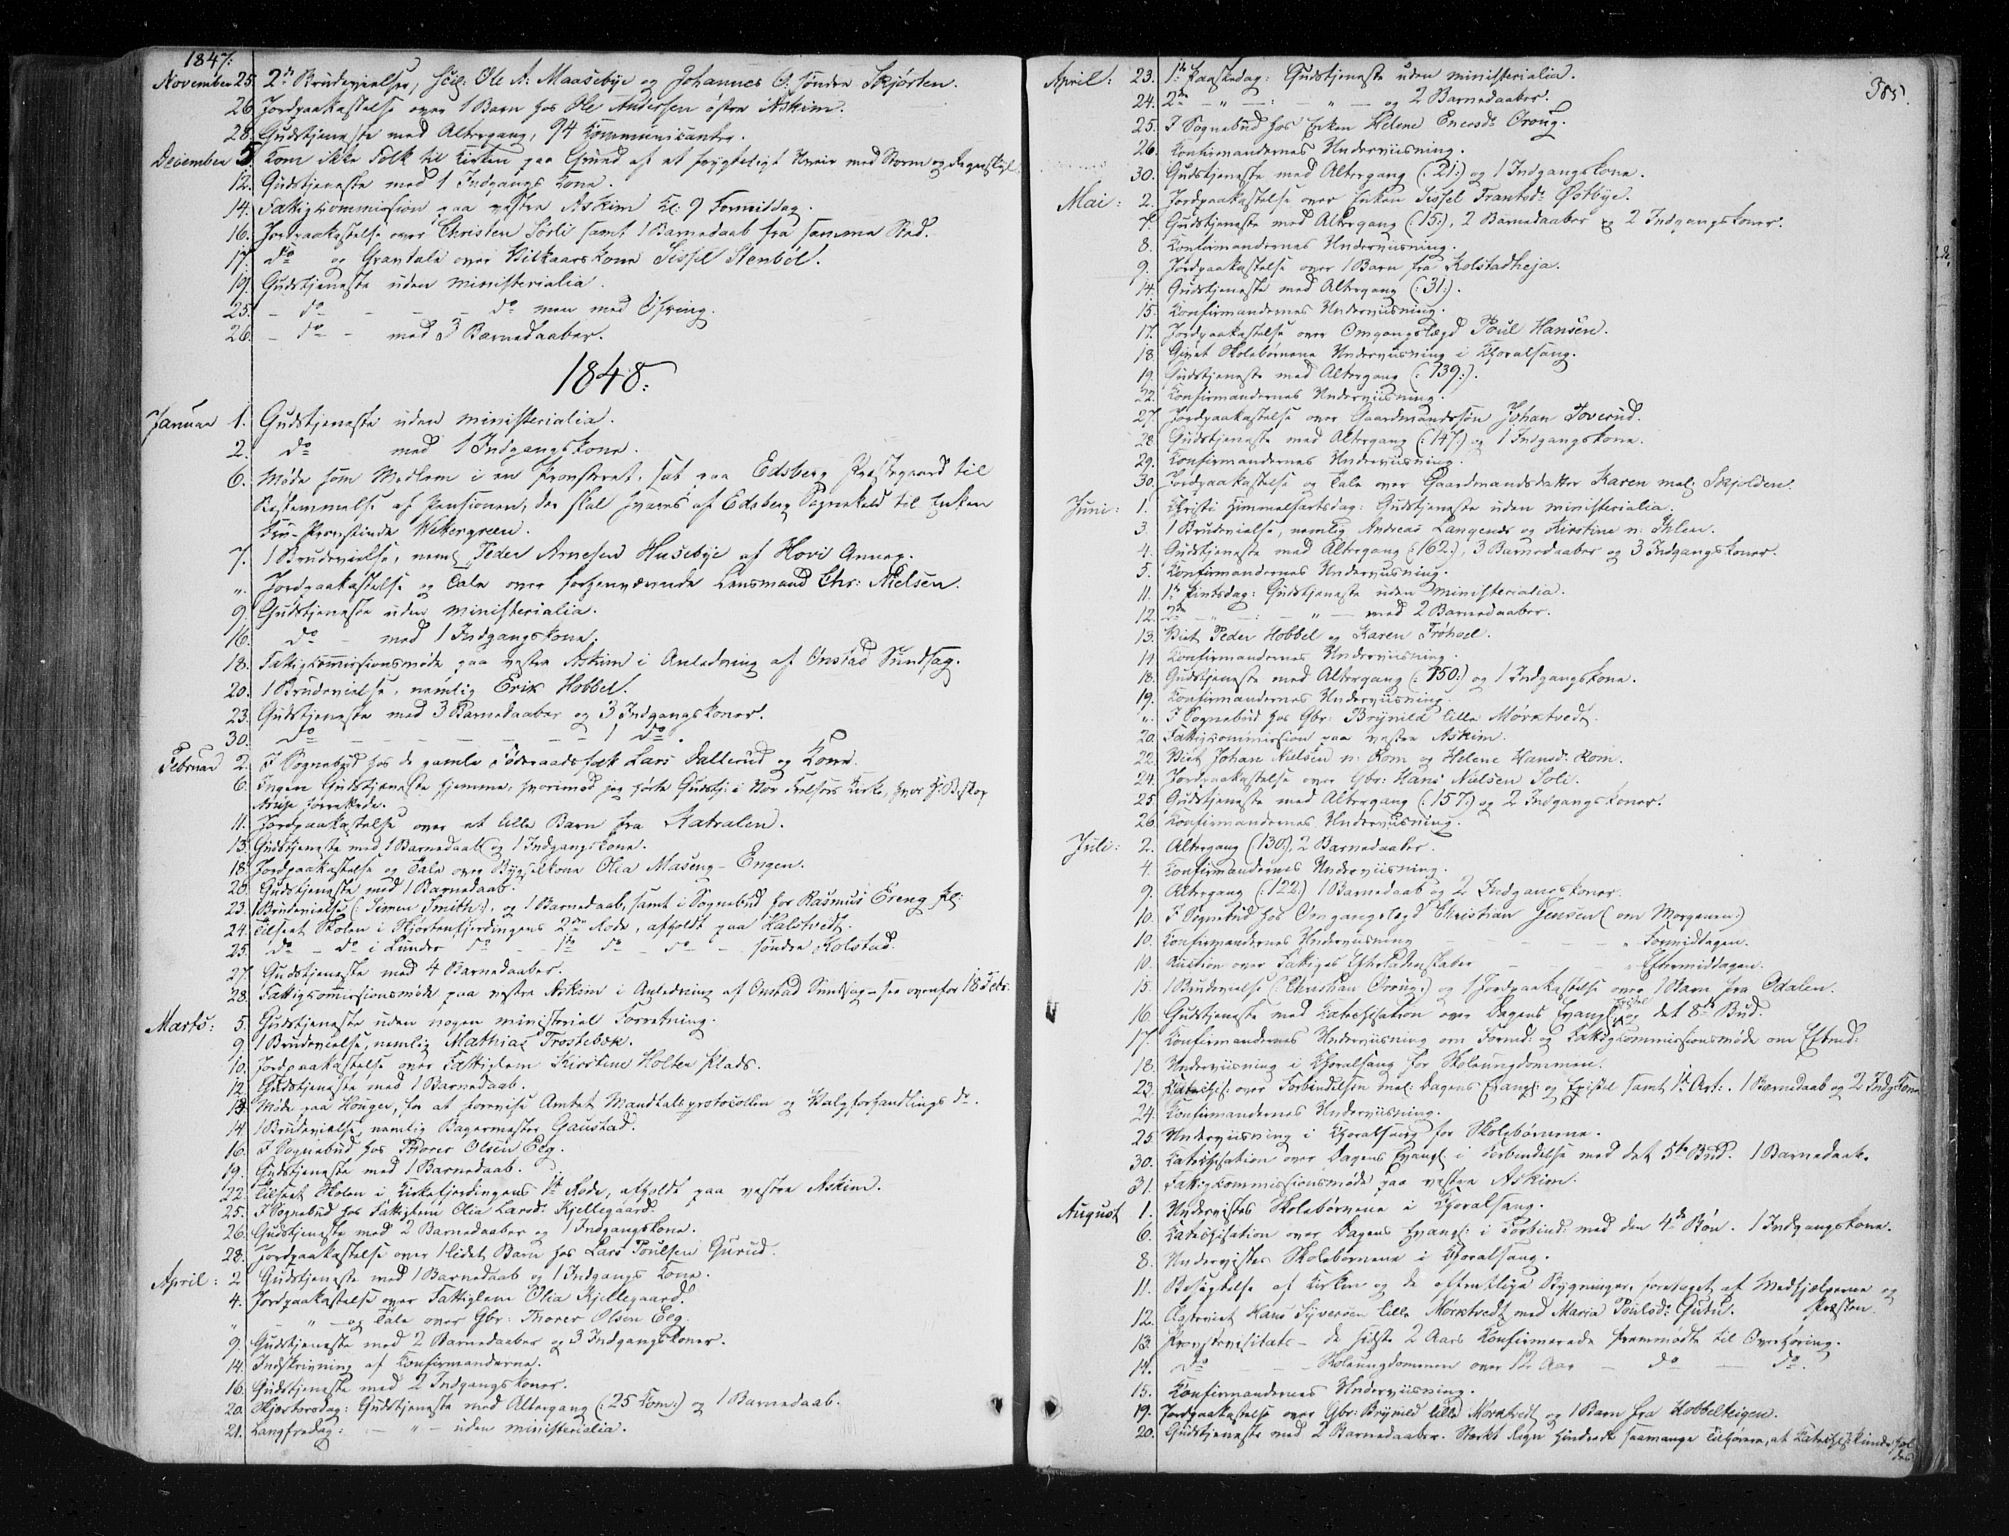 1847.
November 25. 2de Brudevielser, scil: Ole A: Maasebye og Johannes O. søndre Skjørten.
26. Jordpaakastelse over 1 Barn hos Ole Andersen østre Askim.
28. Gudstjeneste med Altergang, 94 Communicanter.
December 5. Kom ikke Folk til Kirken paa Grund af et frygteligt Uveir med Storm og Regnskyl.
12. Gudstjeneste med 1 Indgangs Kone.
14. Fattigcommission paa vestre Askim Kl: 9 Formiddag.
16. Jordpaakastelse over Christen Sørli samt 1 Barnedaab fra samme Sted.
17. do og Gravtale over Vilkaarskone Sissel Stenbøl.
19. Gudstjeneste uden ministerialia.
25. – do – – – do men med Ofring.
26. – do – med 3 Barnedaaber.
1848.
Januar 1. Gudstjeneste uden ministerialia.
2. do med 1 Indgangskone.
6. Møde som Medlem i en Provsteret, sat paa Edsberg Præstegaard til
Bestemmelse af Pensionen, der skal svares af Edsberg Sognekald til Enken
Fru Provstinde Wetergreen.
7. 1 Brudevielse, neml Peder Arnesen Husebye af Hovi Annex.
„ Jordpaakastelse og Tale over forhenværende Lensmand Chr: Nielsen.
9. Gudstjeneste uden ministerialia.
16. do – med 1 Indgangskone.
18. Fattigcommissionsmøde paa vestre Askim i Anledning af Onstad Sundsag.
20. 1 Brudevielse, nemlig Erik Hobbel.
23. Gudstjeneste med 3 Barnedaaber og 3 Indgangskoner.
30. do – – – – – – 1 do.
Februar 2. I Sognebud hos de gamle Føderaadsfolk Lars Dallerud og Kone.
6. Ingen Gudstjeneste hjemme, hvorimod jeg hørte Gudstj: i Vor Frelsers Kirke, hvor H: Biskop
Arup forrettede.
11. Jordpaakastelse over et lille Barn fra Katralen.
13. Gudstjeneste med 1 Barnedaab og 1 Indgangskone.
18. Jordpaakastelse og Tale over Bygselkone Olia Maseng-Engen.
20. Gudstjeneste med 1 Barnedaab.
23. 1 Brudevielse (: Simen Smith:), og 1 Barnedaab, samt i Sognebud hos Rasmus Ereng
24. Tilseet Skolen i Skjørtenfjerdingens 2den Rode, afholdt paa Kalstvedt.
25. do – do i Lunder do – 1te do – do – søndre Kolstad.
27. Gudstjeneste med 4 Barnedaaber.
28. Fattigcommissionsmøde paa vestre Askim i Anledning af Onstad Sundsag – see ovenfor 18 Febr.
Marts: 5. Gudstjeneste uden nogen ministeriel Forretning.
9. 1 Brudevielse, nemlig Mathias Trøstebæk.
10. Jordpaakastelse over Fattiglem Kirstine Holter Plads.
12. Gudstjeneste med 1 Barnedaab.
13. Møde paa Houger, for at forevise Amtet Mandtalsprotocollen og Valgforhandlings do.
14. 1 Brudevielse, nemlig Bagermester Gaustad.
16. I Sognebud hos Thorer Olsen Eeg.
19. Gudstjeneste med 1 Barnedaab.
22. Tilseet Skolen i Kirkefjerdingens 1te Rode, afholdt paa vestre Askim.
25. I Sognebud hos Fattiglem Olia Larsd: Kjellegaard.
26. Gudstjeneste med 2 Barnedaaber og 1 Indgangskone.
28. Jordpaakastelse over 1 lidet Barn hos Lars Poulsen Gurud.
April: 2. Gudstjeneste med 1 Barnedaab og 1 Indgangs Kone.
4. Jordpaakastelse over Fattiglem Olia Kjellegaard.
„ – „ – og Tale over Gbr: Thorer Olsen Eeg.
9. Gudstjeneste med 2 Barnedaaber og 3 Indgangskoner.
14. Indskrivning af Konfirmanderne.
16. Gudstjeneste med 2 Indgangskoner.
20. Skjærtorsdag: Gudstjeneste med Altergang (: 25 Kom:) og 1 Barnedaab.
21. Langfredag: – „ – uden ministerialia.
385.
April: 23. 1te Paaskedag: Gudstjeneste uden ministerialia.
24. 2den – „ – : – „ – og 2 Barnedaaber.
25. I Sognebud hos Enken Helene Eneasd: Oroug.
26. Konfirmandernes Underviisning.
30. Gudstjeneste med Altergang (: 21:) og 1 Indgangskone.
Mai: 2. Jordpaakastelse over Enken Sissel Frantsd: Østbye.
7. Gudstjeneste med Altergang (: 15:), 2 Barnedaaber og 2 Indgangskoner.
8. Konfirmandernes Underviisning.
9. Jordpaakastelse over 1 Barn fra Kolstadheja.
14. Gudstjeneste med Altergang (: 31:).
15. Konfirmandernes Underviisning.
17. Jordpaakastelse over Omgangslægd Poul Hansen.
18. Givet Skolebørnene Underviisning i Choralsang.
19. Gudstjeneste med Altergang (: 139:).
22. Konfirmandernes Underviisning.
27. Jordpaakastelse over Gaardmandssøn Johan Toverud.
28. Gudstjeneste med Altergang (: 147:) og 1 Indgangskone.
29. Konfirmandernes Underviisning.
30. Jordpaakastelse og Tale over Gaardmandsdatter Karen mel: Skjolden.
Juni: 1. Christi Himmelfartsdag: Gudstjeneste uden ministerialia.
3. 1 Brudevielse, nemlig Andreas Langenes og Kirstine n: Ihlen.
4. Gudstjeneste med Altergang (: 162:), 3 Barnedaaber og 3 Indgangskoner.
5. Konfirmandernes Underviisning.
11. 1te Pintsdag: Gudstjeneste uden ministerialia.
12. 2den – „ – : – „ – med 2 Barnedaaber.
13. Viet Peder Hobbel og Karen Trøhael.
14. Konfirmandernes Underviisning.
18. Gudstjeneste med Altergang (: 150:) og 1 Indgangskone.
19. Konfirmandernes Underviisning.
„ I Sognebud hos Gbr: Brynild lille Mørktvedt.
20. Fattigcommission paa vestre Askim.
22. Viet Johan Nielsen n: Rom og Helene Hansd: Rom.
24. Jordpaakastelse over Gbr: Hans Nielsen Soli.
25. Gudstjeneste med Altergang (: 157:) og 2 Indgangskoner.
26. Konfirmandernes Underviisning.
Juli: 2. Altergang (: 130:), 2 Barnedaaber.
4. Konfirmandernes Underviisning.
9. Altergang (: 122:) 1 Barnedaab og 2 Indgangskoner.
10. I Sognebud hos Omgangslægd Christian Jensen (: om Morgenen:)
10. Konfirmandernes Underviisning – – – „ Formiddagen.
10. Auction over Fattiges Efterladenskaber – – „ Eftermiddagen.
15. 1 Brudevielse (: Christian Oroug:) og 1 Jordpaakastelse over 1 Barn fra Odalen.
16. Gudstjeneste med Katechisation over Dagens Evangl: Epistel og det 8de Bud.
17. Konfirmandernes Underviisning om Formd: og Fattigcommissionsmøde om Eftmd:
18. Underviisning i Choralsang for Skoleungdommen.
23. Katechis: over Forbindelsen mel: Dagens Evangl: og Epistel samt 1te Art:. 1 Barnedaab og 2 Indg: Kone
24. Konfirmandernes Underviisning.
25. Underviisning i Choralsang for Skolebørnene.
30. Katechisation over Dagens Evangl: i Forbindelse med det 5te Bud. 1 Barnedaab.
31. Fattigkommissionsmøde paa vestre Askim.
August 1. Undervistes Skolebørnene i Choralsang.
6. Katechisation over Dagens Evangl: i Forbind: med den 4de Bøn. 1 Indgangskone.
8. Undervistes Skolebørnene i Choralsang.
11. Besigtelse af Kirken og de offentlige Bygninger, foretaget af Medhjælperne og
Præsten.
12. Ægteviet Hans Syversen lille Mørktvedt med Maria Poulsd: Gutu.
13. Provstevisitats – de sidste 2 Aars Konfirmerede fremmødte til Overhøring.
14. do – – Skoleungdommen over 12 Aar – do – do.
15. Konfirmandernes Underviisning.
19. Jordpaakastelse over Gbr: Brynild lille Mørktvedt og 1 Barn fra Hobbelteigen.
20. Gudstjeneste med 2 Barnedaaber. Stærkt Regn hindrede saamange Tilhørere, at Katechis: kunde hol-
des.